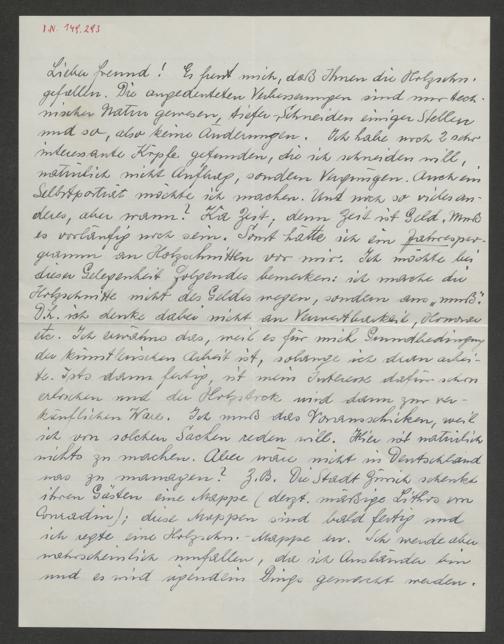 I.N. 149.293
Lieber Freund! Es freut mich, daß Ihnen die Holzschn.
gefallen. Die angedeuteten Verbesserungen sind nur tech-
nischer Natur gewesen, tiefer Schneiden einiger Stellen
und so, also keine Änderungen. Ich habe noch 2 sehr
interessante Köpfe gefunden, die ich schneiden will,
natürlich nicht Auftrag, sondern Vergnügen. Auch ein
Selbstporträt möchte ich machen. Und noch so vieles an-
deres, aber wann? Ka Zeit, denn Zeit ist Geld. Muß
es vorläufig noch sein. Sonst hätte ich ein Jahrespro-
gramm an Holzschnitten vor mir. Ich möchte bei
dieser Gelegenheit folgendes bemerken: ich mache die
Holzschnitte nicht des Geldes wegen, sondern aus „muß".
D.h. ich denke dabei nicht an Verwertbarkeit, Honorar
etc. Ich erwähne das, weil es für mich Grundbedingung
der künstlerischen Arbeit ist, solange ich dran arbei-
te. Ists dann fertig, ist mein Interesse dafür schon
erloschen und der Holzstock wird dann zur ver-
käuflichen Ware. Ich muß das Vorausschicken, weil
ich von solchen Sachen reden will. Hier ist natürlich
nichts zu machen. Aber wäre nicht in Deutschland
was zu managen? Z.B. Die Stadt Zürich schenkt
ihren Gästen eine Mappe (derzt. mäßige Lithos von
Conradin); diese Mappen sind bald fertig und
ich regte eine Holzschn.-Mappe an. Ich werde aber
wahrscheinlich umfallen, da ich Ausländer bin
und es wird irgendein Dings gemacht werden.